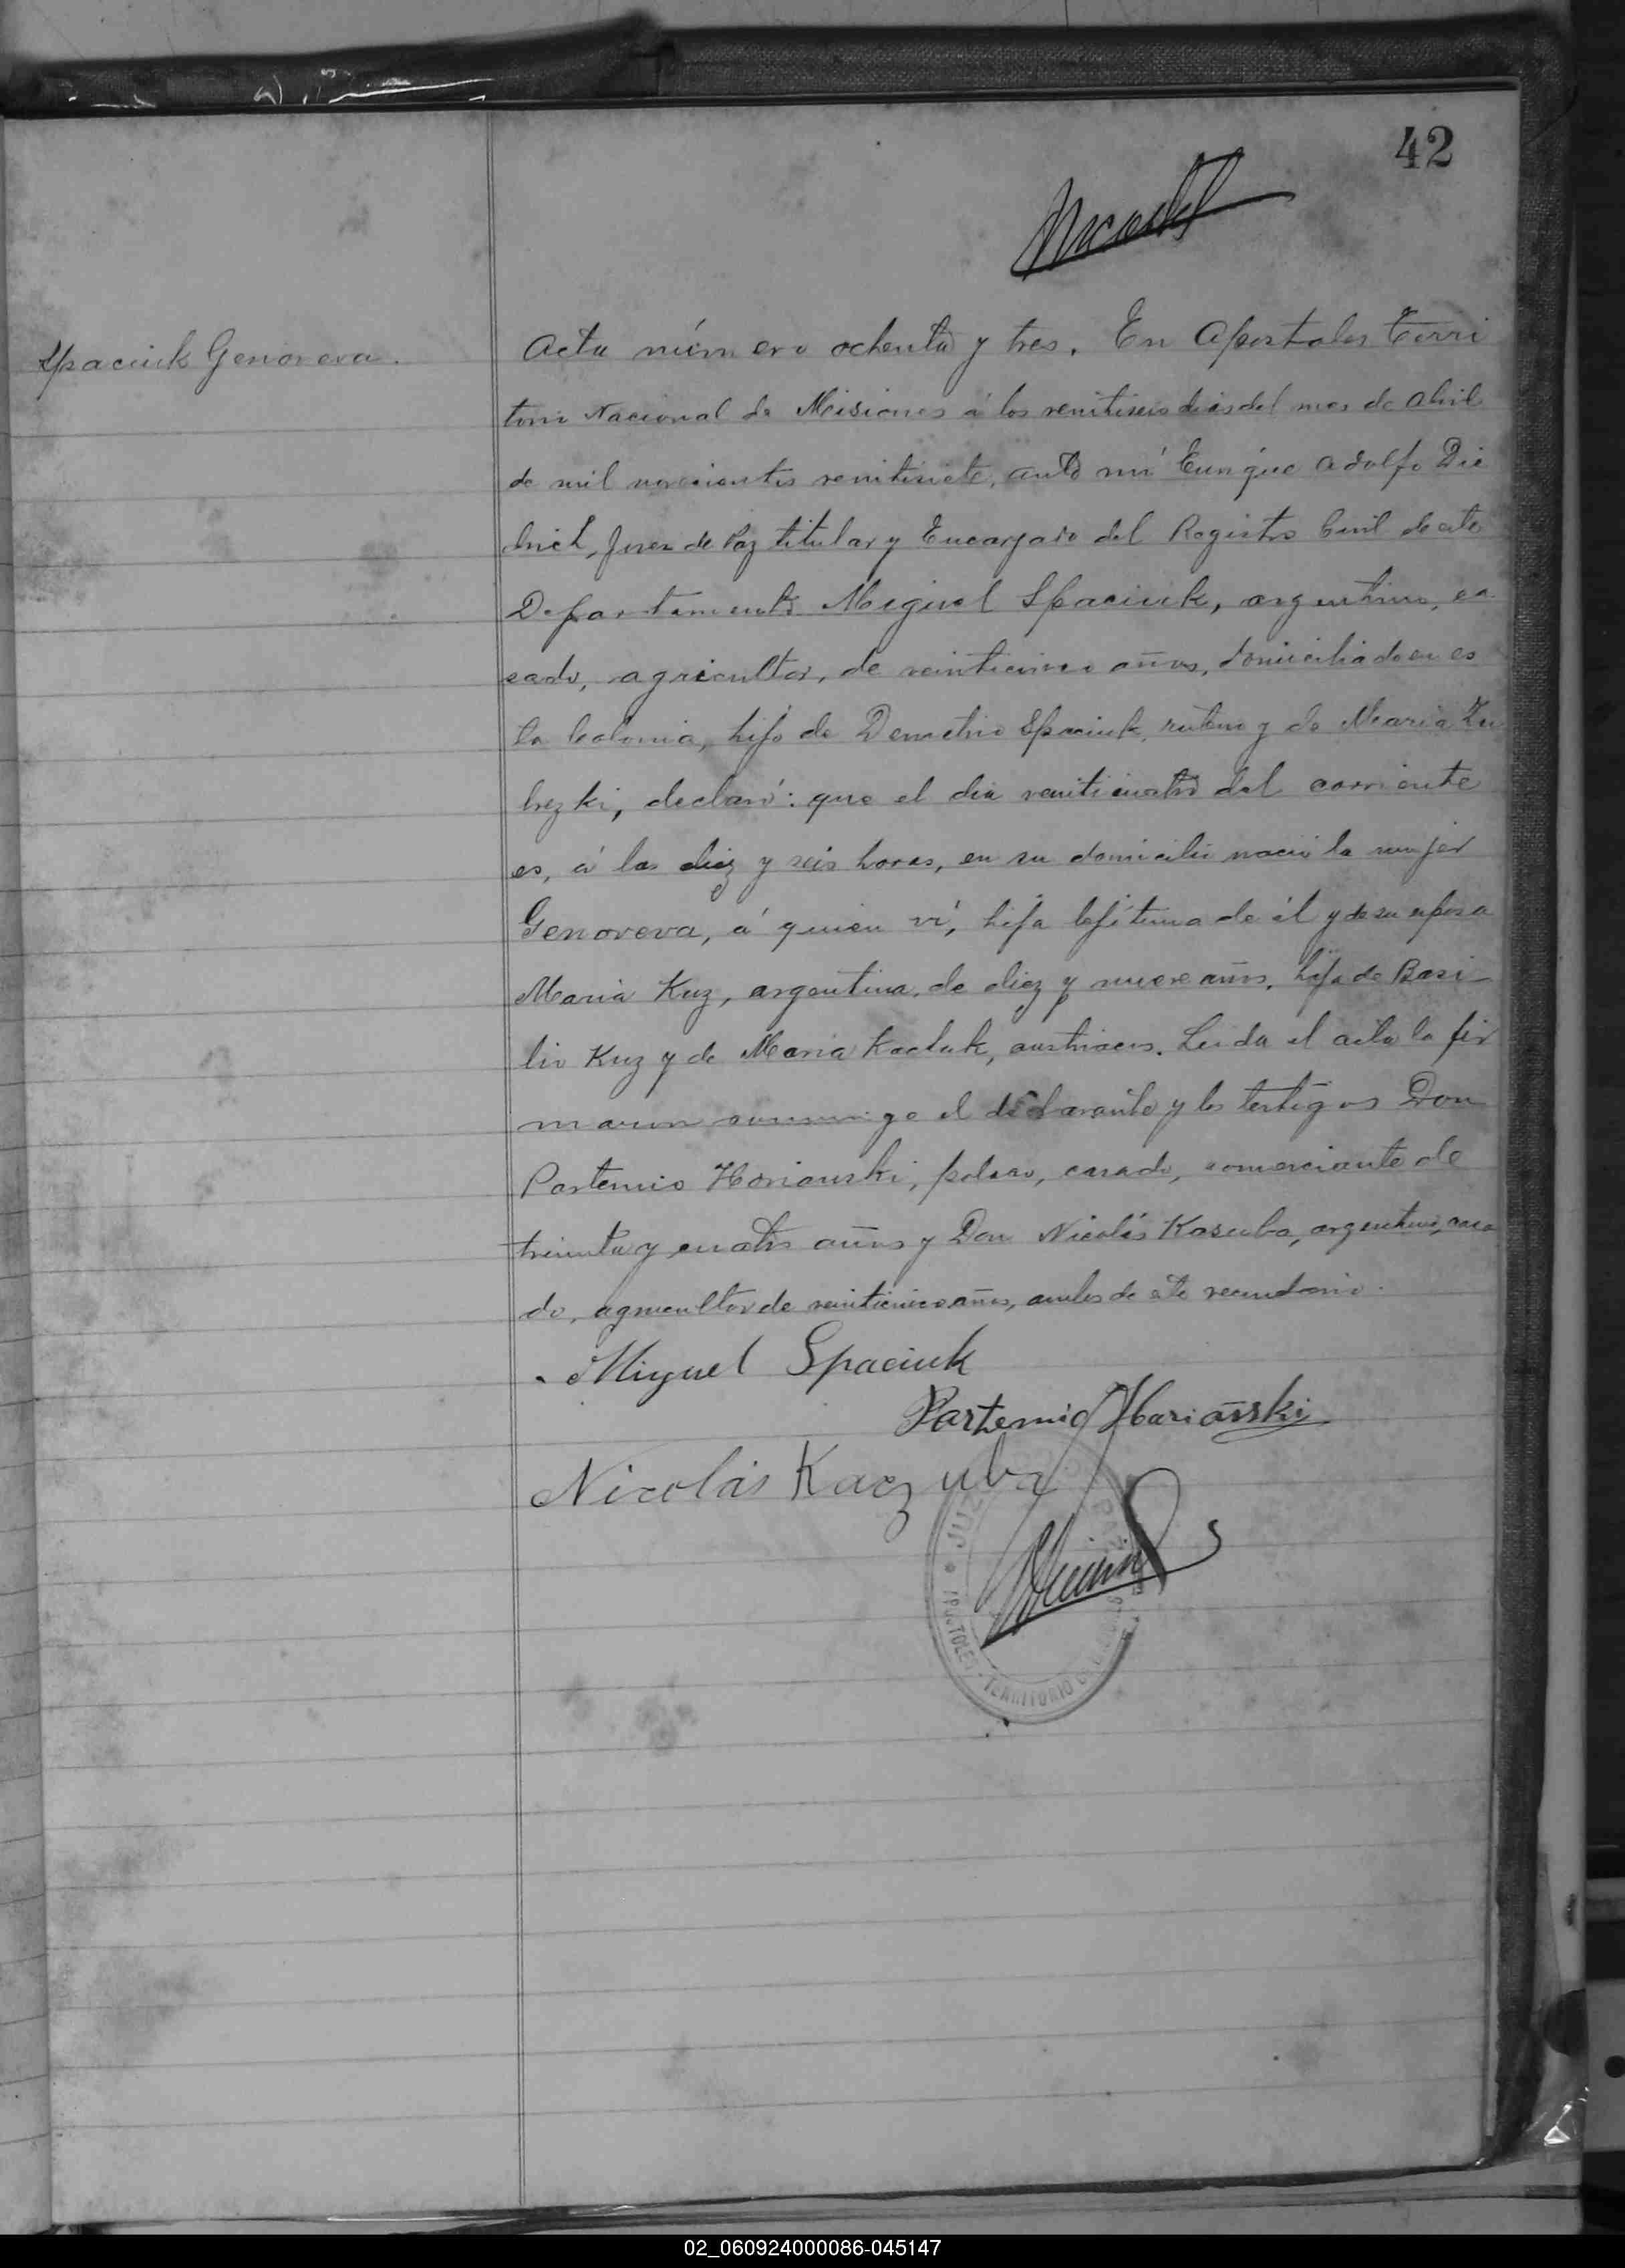 42
Spaciuk Genoveva.
Acta número ochenta y tres. En Apostoles Terri
torio Nacional de Misiones á los veintiseis dias del mes de Abril
de mil novecientos veintisiete, ante mi Enrique Adolfo Die
drich, Juez de Paz titular y Encargado del Registro Civil de este
Departamento Miguel Spaciuk, argentino, ca
sado, agricultor, de veinticinco años, domiciliado en es
ta Colonia, hijo de Demetrio Spaciuk, ruteno y de Maria Zu
brezki, declaró: que el dia veinticuatro del corriente
es, á las diez y seis horas, en su domicilio nació la mujer
Genoveva, á quien ví, hija lejitima de él y de su esposa
Maria Kuz, argentina, de diez y nueve años, hija de Basi
lio Kuz y de Maria Kochuk, austriacos. Leida el acta la fir
maron conmigo el declarante y los testigos Don
Partemio Horianski, polaco, casado, comerciante de
treinta y cuatro años y Don Nicolás Kasuba, argentino, casa
do, agricultor de veinticinco años, ambos de este vecindario.
Miguel Spaciuk
Partemio Harianski
Nicolás Kaczuba
JUZ PAZ
TERRITORIO
02_060924000086-045147